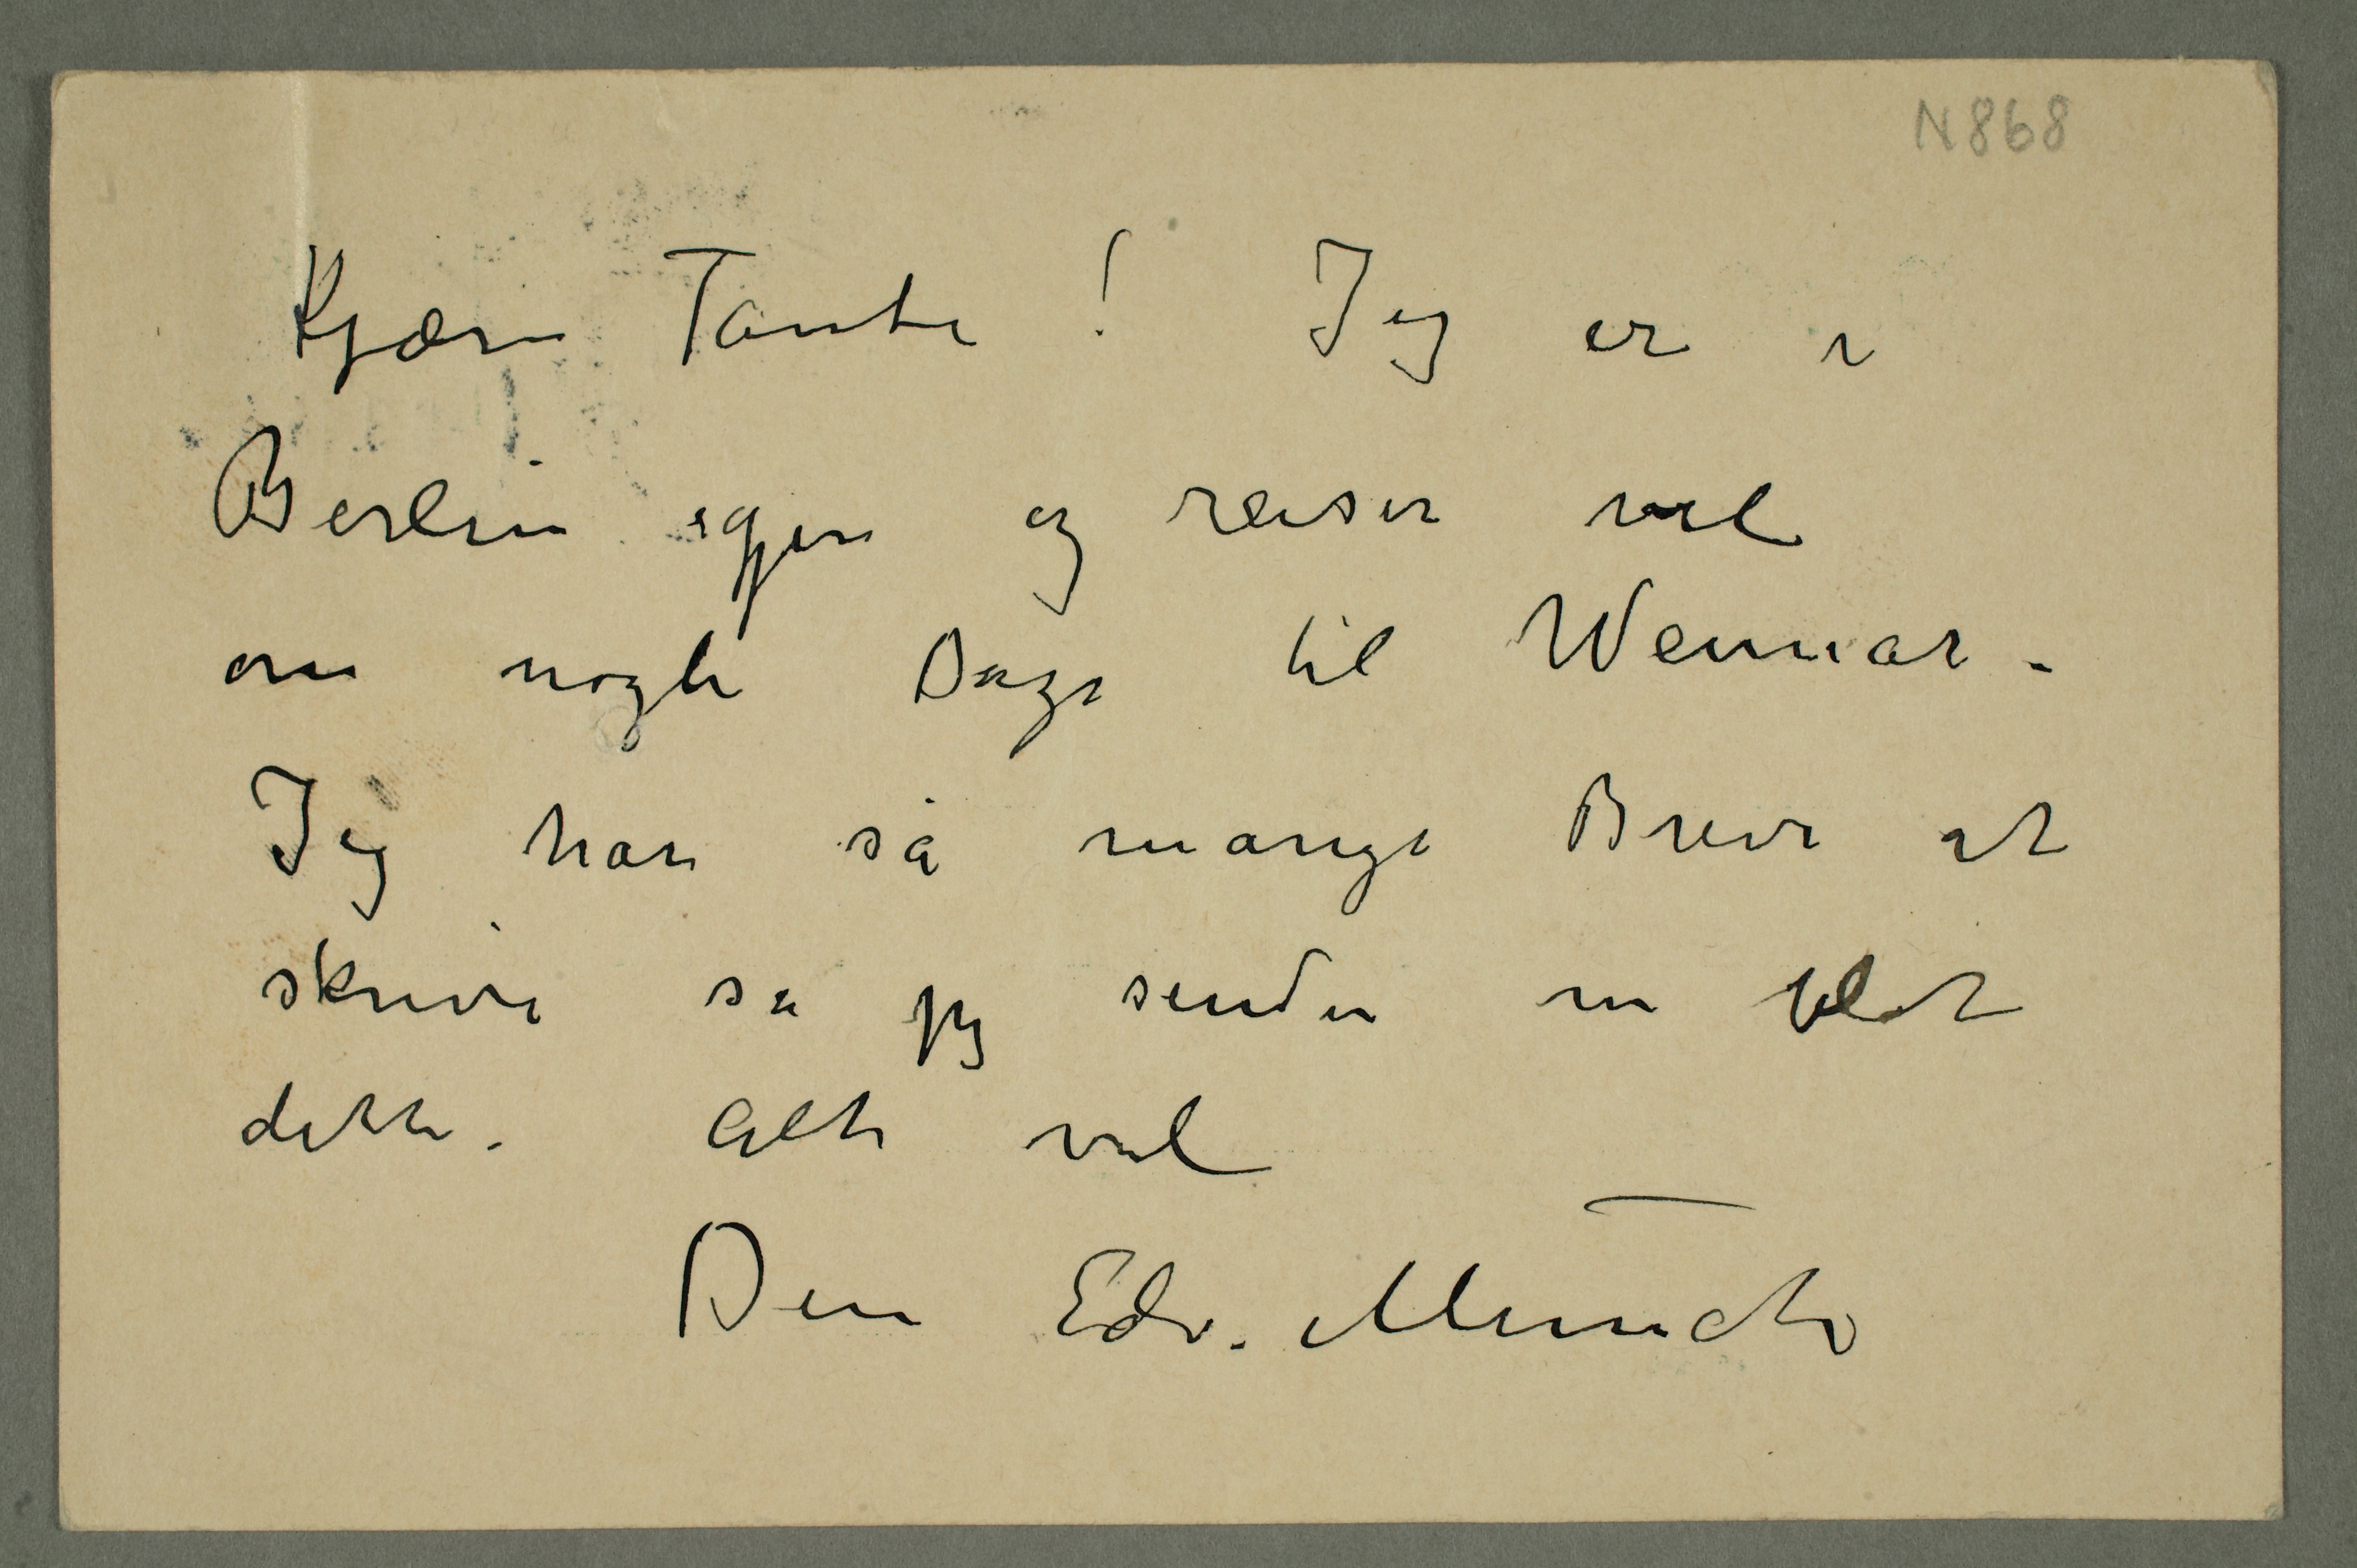 N 868
Kjære Tante! Jeg er i
Berlin igjen og reiser vel
om nogle Dage til Weimar –
Jeg har så mange Breve at
skrive så jeg sender nu blot
dette. Alt vel
Din Edv. Munch